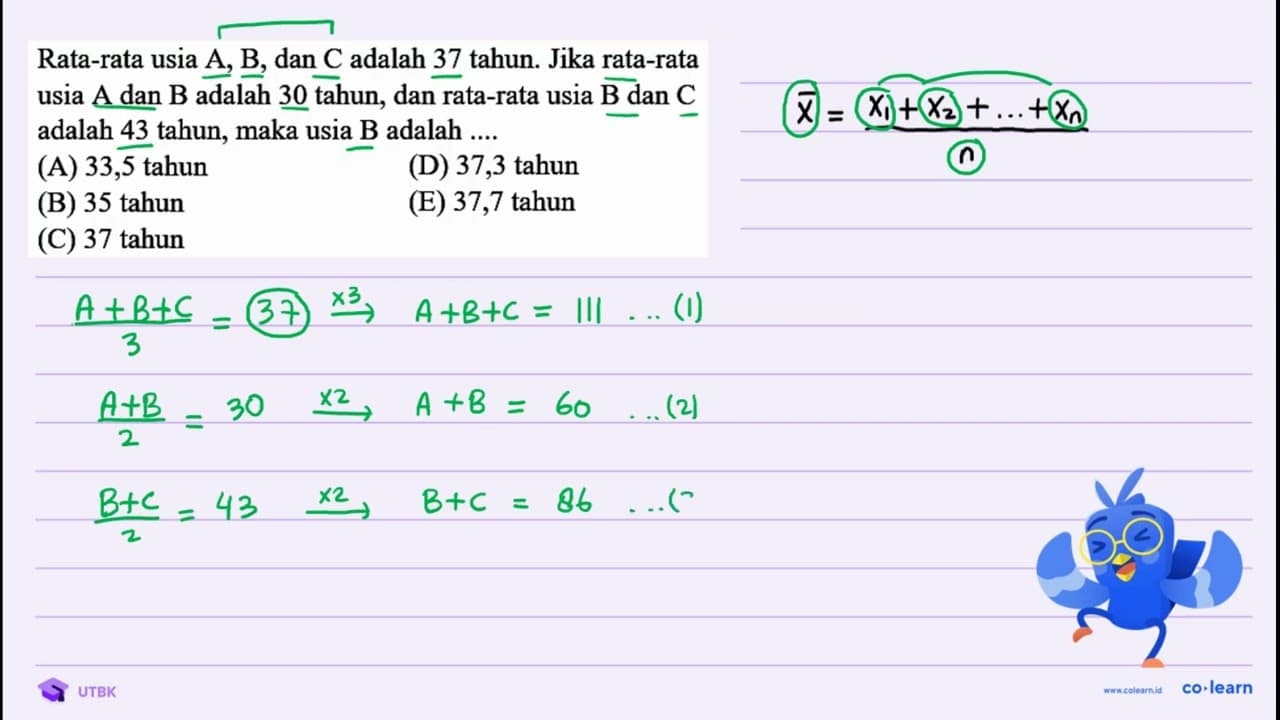 Rata-rata usia A, B, dan C adalah 37 tahun. Jika rata-rata
usia A dan B adalah 30 tahun, dan rata-rata usia B dan C
adalah 43 tahun, maka usia B adalah ....
(A) 33,5 tahun (D) 37,3 tahun
(B) 35 tahun (E) 37,7 tahun
(C) 37 tahun
x̄ = (x₁ + x₂ + ... + xₙ) / n
(A+B+C)/3 = 37 x3→ A+B+C = 111 ... (1)
(A+B)/2 = 30 x2→ A+B = 60 ... (2)
(B+C)/2 = 43 x2→ B+C = 86 ... (
UTBK
www.colearn.id co·learn